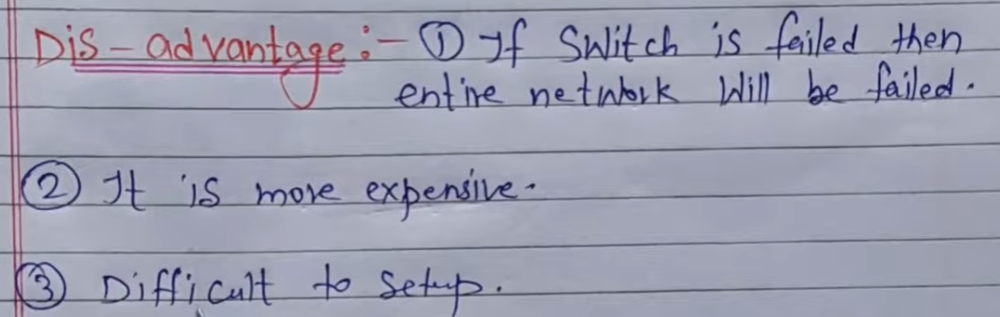 Dis-advantage :- ① If Switch is failed then
entire network Will be failed.
② It is more expensive.
③ Difficult to Setup.